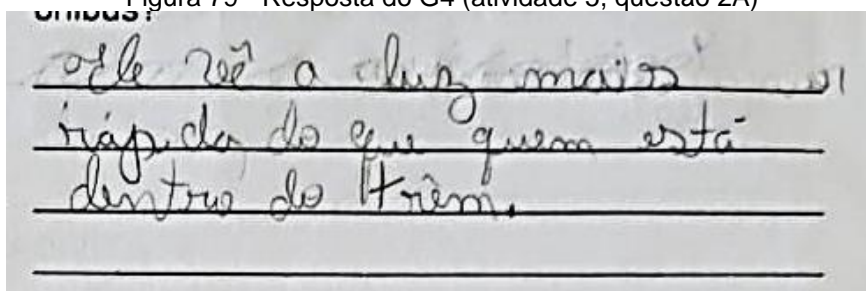 Figura 79 - Resposta do G4 (atividade 3, questão 2A)
ônibus?
Ele vê a luz mais
rápida do que quem está
dentro do trêm.